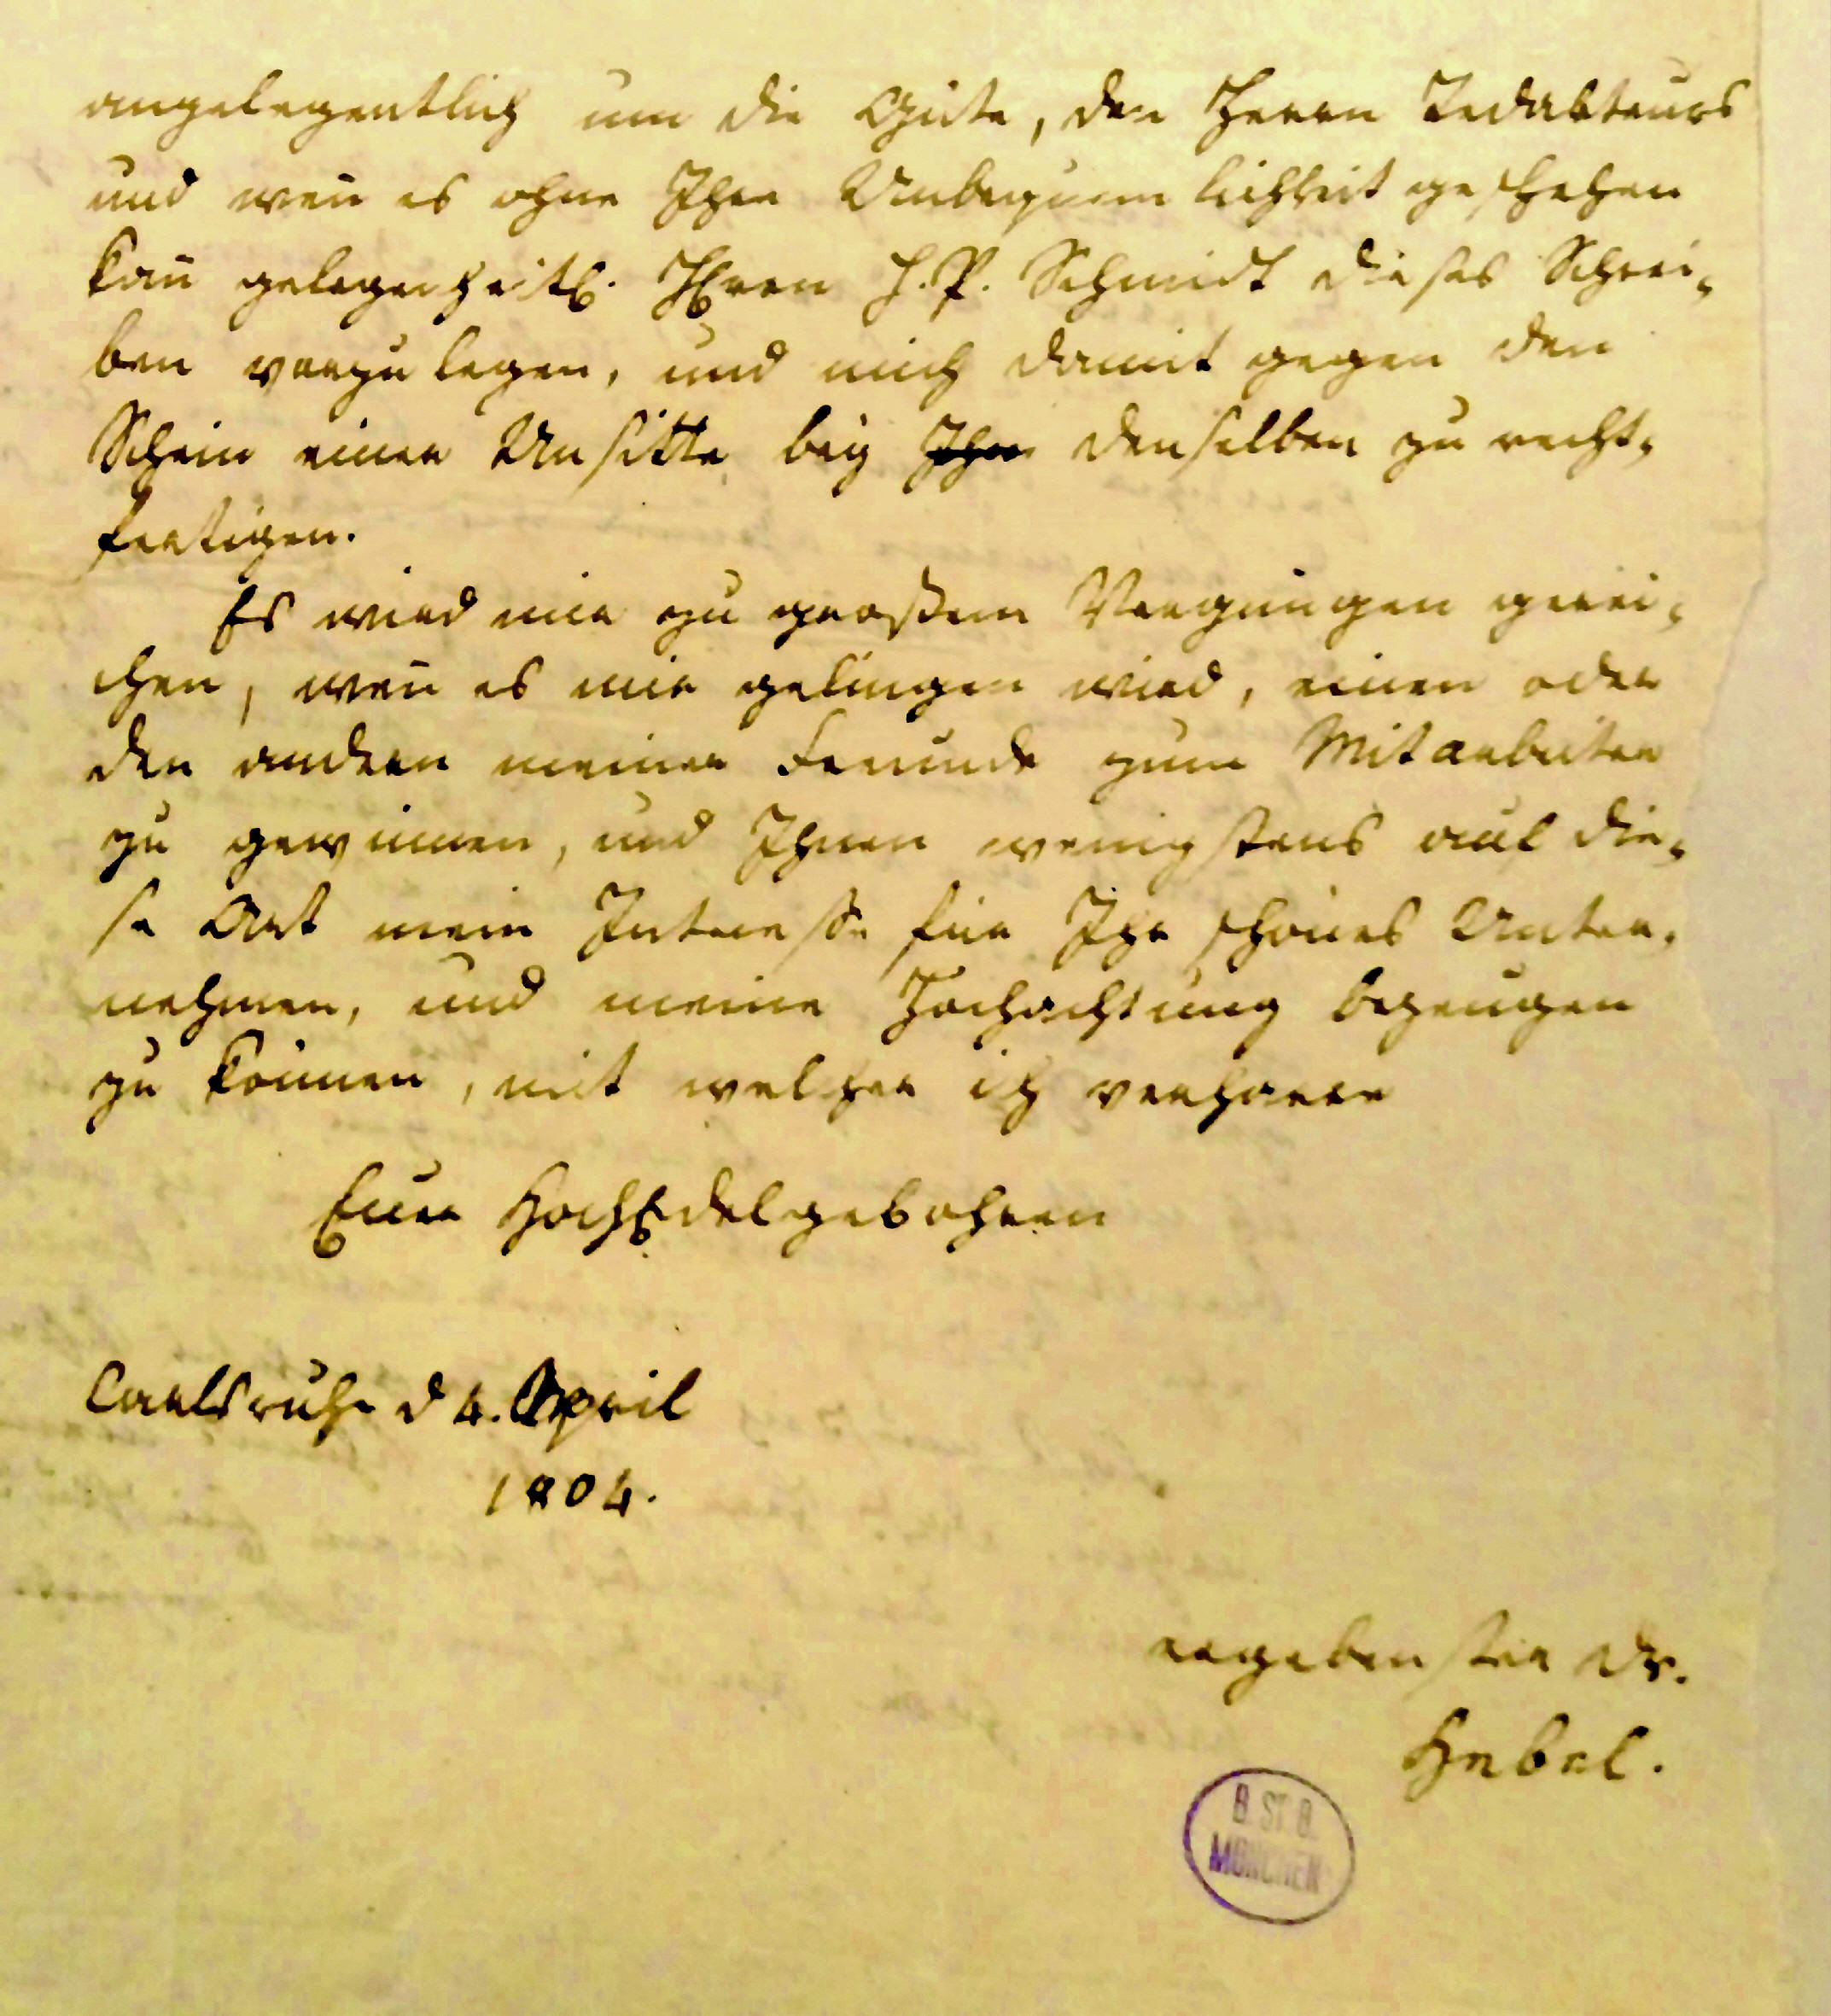 angelegentlich um die Güte, den Herrn Redakteurs
und weñ es ohne Ihre Unbequemlichkeit geschehen
kañ gelegenheitl. Herrn H. P. Schmidt dieses Schrei-
ben vorzulegen, und mich damit gegen den
Schein einer Unsitte bey Ihm denselben zu recht-
fertigen.
Es wird mir zu großem Vergnügen gerei-
chen, weñ es mir gelingen wird, einen oder
den andern meiner Freunde zum Mitarbeiter
zu gewinnen, und Ihnen wenigstens auf die-
se Art mein Interesse für Ihr schönes Unter-
nehmen, und meine Hochachtung bezeugen
zu können, mit welcher ich verharre
Euer HochEdelgebohren
Carlsruhe d 4. April
1804.
ergebenster Dr.
Hebel.
B. ST. B.
MÜNCHEN